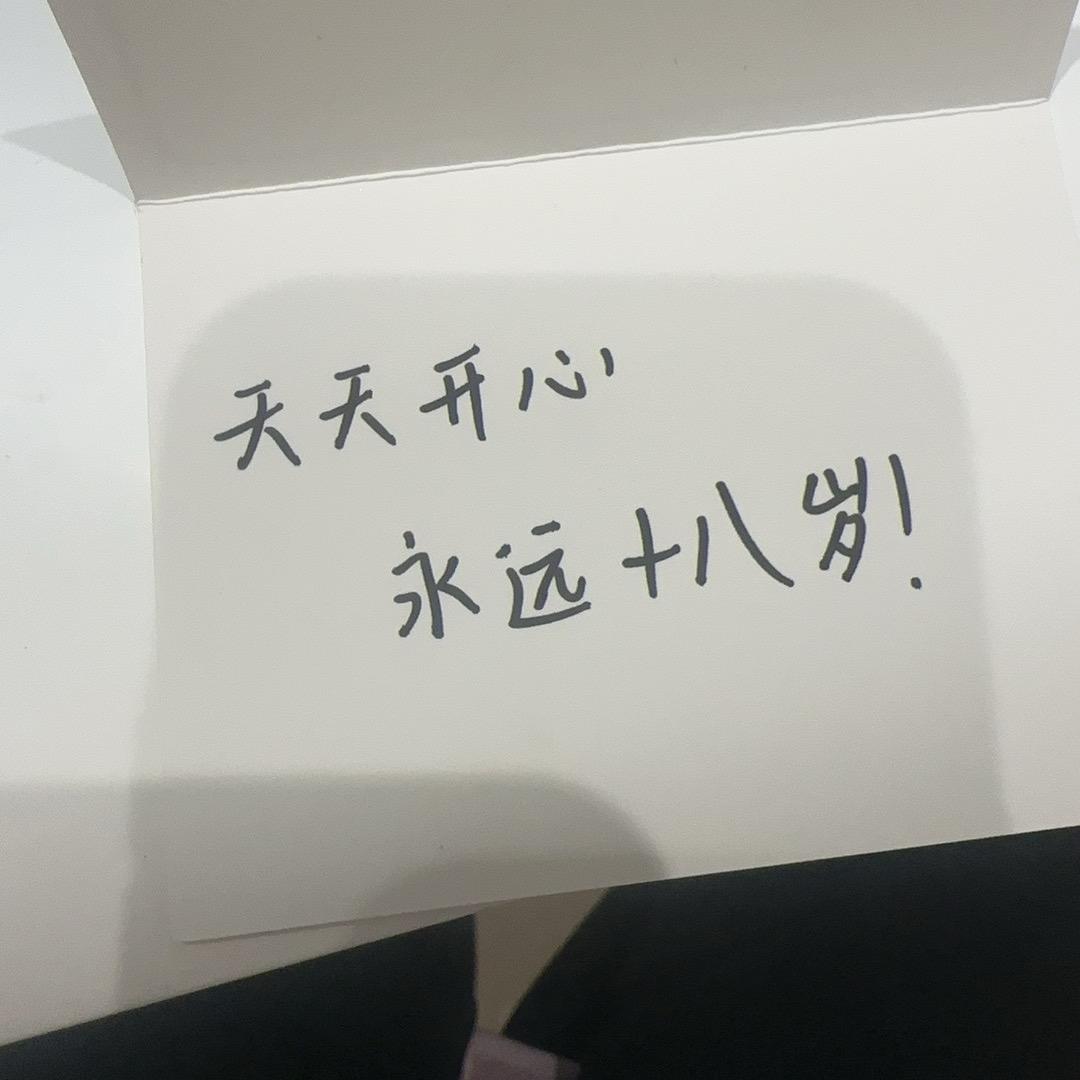 天天开心
永远十八岁!